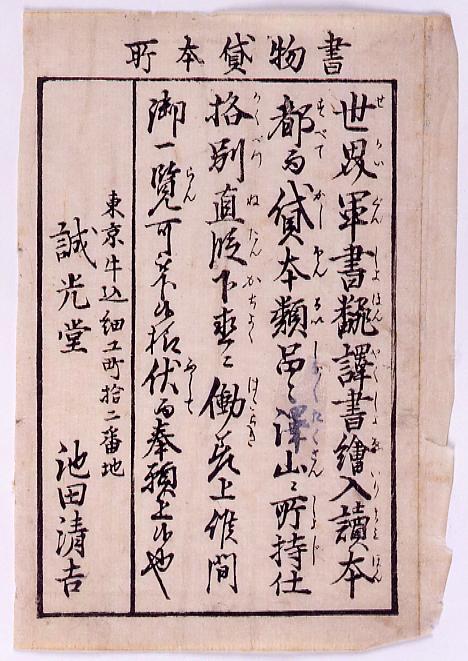 書物貸本所
世界軍書飜譯書繪入讀本
都而貸本類品々澤山ニ所持仕
格別直段下直ニ働差上候間
御一覧可被下候様伏而奉願上候也
東京牛込細工町拾二番地
誠光堂 池田清吉